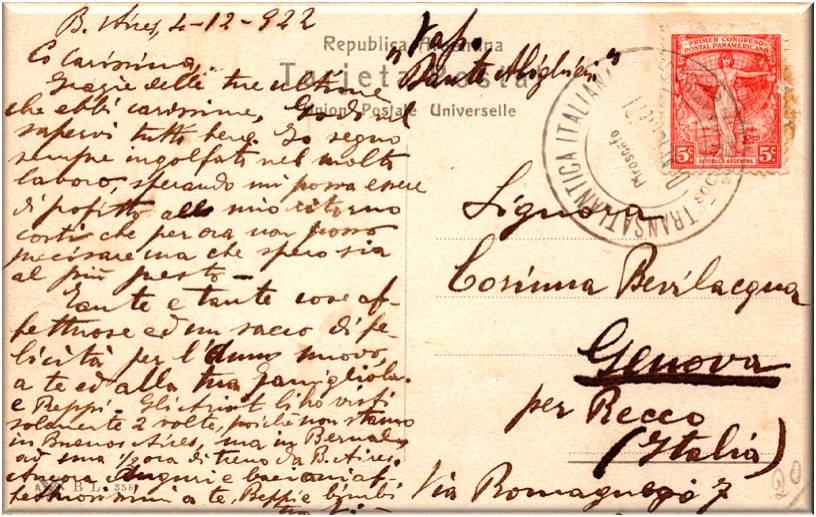 B. Aires, 4-12-922
Carissima,
Grazie delle tue ultime
che ebbi carissime, Godo nel
sapervi tutti bene. Io seguo
sempre ingolfato nel molto
lavoro, sperando mi possa essere
di profitto al mio ritorno
costì che per ora non posso
precisare ma che spero sia
al più presto —
Tante e tante cose af-
fettuose ed un sacco di fe-
licità per l'Anno nuovo,
a te ed alla tua famigliola.
e Beppi - Gli li ho visti
solamente 2 volte, poichè non stanno
in Buenos Aires, ma in Bernal
ad una 1/2 ora di treno da B. Aires.
Ancora Auguri e baci af-
fettuosissimi a te, Beppi e bimbi
Republica Argentina
Tarjeta Postal
Union Postale Universelle
"Vap.
Dante Alighieri"
PRIMER CONGRESO
POSTAL PANAMERICANO
5c
REPUBLICA ARGENTINA
5c
TRANSATLANTICA ITALIANA
Piroscafo
Signora
Corinna Bevilacqua
Genova
per Recco
(Italia)
Via Romagneso 7
B L 355
20